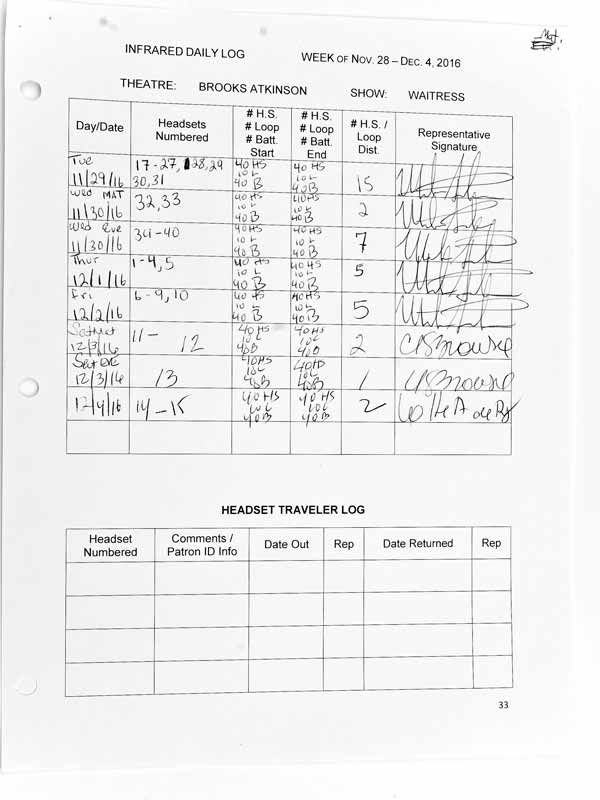 Mat.
INFRARED DAILY LOG WEEK OF NOV. 28 – DEC. 4, 2016
THEATRE: BROOKS ATKINSON SHOW: WAITRESS
Day/Date Headsets Numbered # H.S. # Loop # Batt. Start # H.S. # Loop # Batt. End # H.S. / Loop Dist. Representative Signature
Tue 11/29/16 17-27, 28, 29 30, 31 40 HS 10 L 40 B 40 HS 10 L 40 B 15
Wed MAT 11/30/16 32, 33 40 HS 10 L 40 B 40 HS 10 L 40 B 2
Wed Eve 11/30/16 34-40 40 HS 10 L 40 B 40 HS 10 L 40 B 7
Thur 12/1/16 1-4, 5 40 HS 10 L 40 B 40 HS 10 L 40 B 5
Fri 12/2/16 6-9, 10 40 HS 10 L 40 B 40 HS 10 L 40 B 5
Sat Mat 12/3/16 11- 12 40 HS 10L 40B 40 HS 10L 40B 2
Sat EVE 12/3/16 13 40HS 10L 40B 40HS 10L 40B 1
12/4/16 14-15 40HS 10L 40B 40HS 10L 40B 2
HEADSET TRAVELER LOG
Headset Numbered Comments / Patron ID Info Date Out Rep Date Returned Rep
33